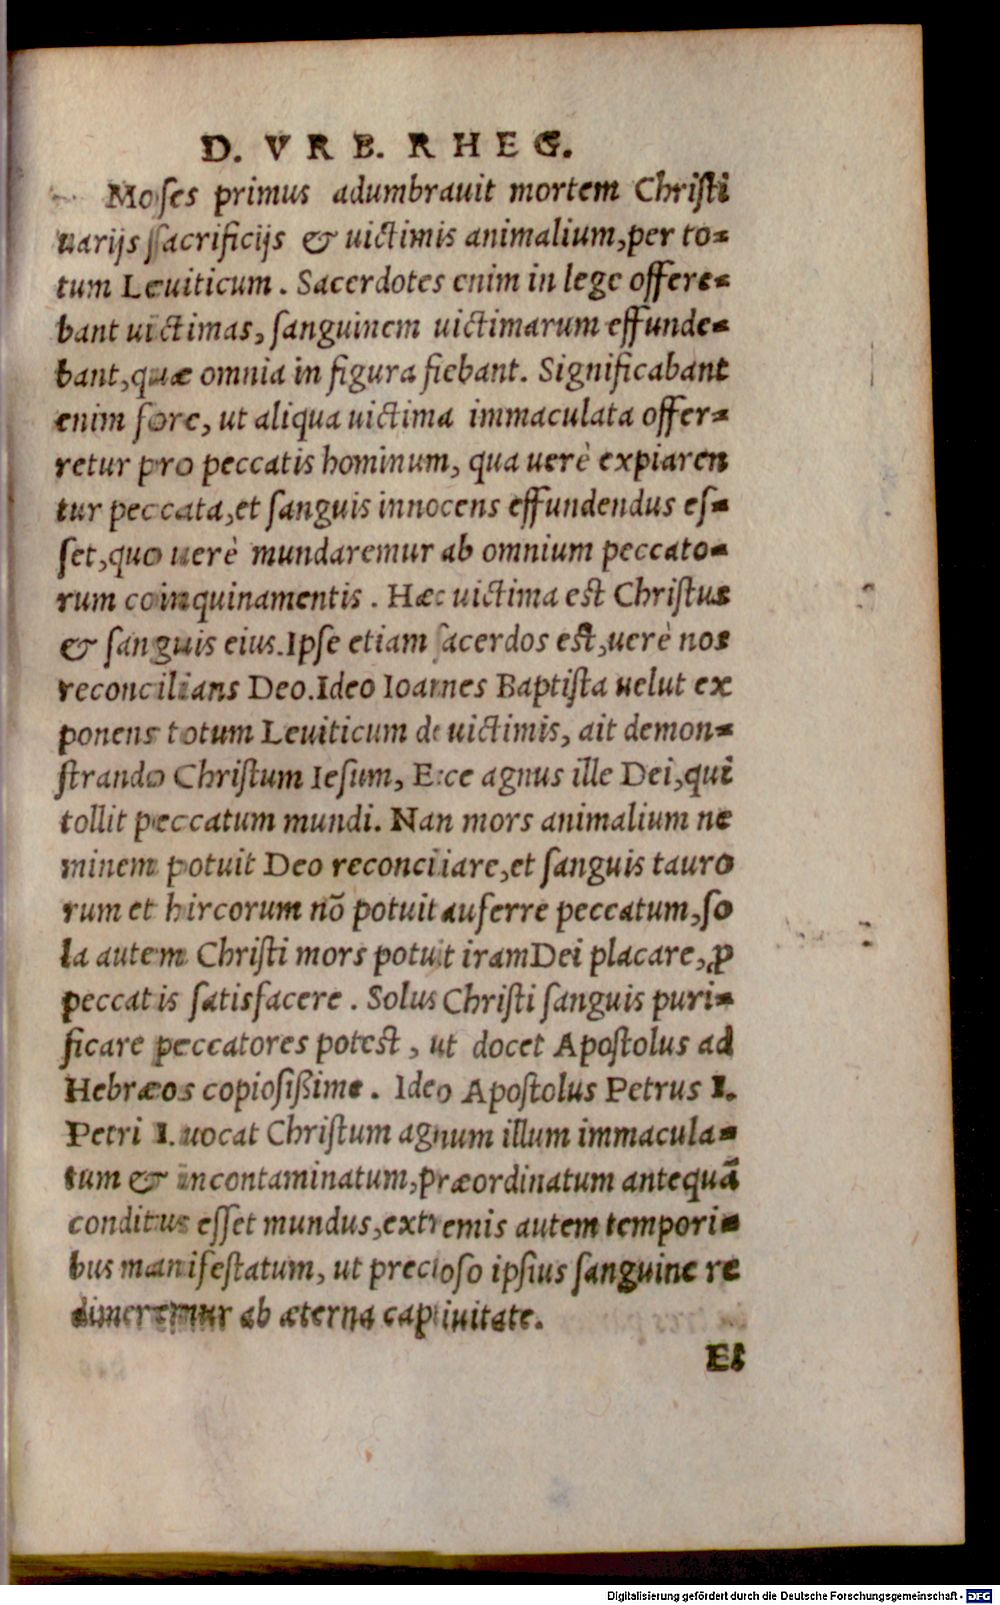 D. VRB. RHEG.
Moses primus adumbrauit mortem Christi
uarijs sacrificijs & uictimis animalium, per to-
tum Leuiticum. Sacerdotes enim in lege offere-
bant uictimas, sanguinem uictimarum effunde-
bant, quæ omnia in figura fiebant. Significabant
enim fore, ut aliqua uictima immaculata offer-
retur pro peccatis hominum, qua uerè expiaren
tur peccata, et sanguis innocens effundendus es-
set, quo uerè mundaremur ab omnium peccato-
rum coinquinamentis. Hæc uictima est Christus
& sanguis eius. Ipse etiam sacerdos est, uerè nos
reconcilians Deo. Ideo Ioannes Baptista uelut ex
ponens totum Leuiticum de uictimis, ait demon-
strando Christum Iesum, Ecce agnus ille Dei, qui
tollit peccatum mundi. Nan mors animalium ne
minem potuit Deo reconciliare, et sanguis tauro
rum et hircorum nõ potuit auferre peccatum, so
la autem Christi mors potuit iram Dei placare, ꝓ
peccatis satisfacere. Solus Christi sanguis puri-
ficare peccatores potest, ut docet Apostolus ad
Hebræos copiosißime. Ideo Apostolus Petrus I.
Petri I. uocat Christum agnum illum immacula-
tum & incontaminatum, præordinatum antequã
conditus esset mundus, extremis autem tempori-
bus manifestatum, ut precioso ipsius sanguine re
dimeremur ab æterna captiuitate.
Et
Digitalisierung gefördert durch die Deutsche Forschungsgemeinschaft - DFG